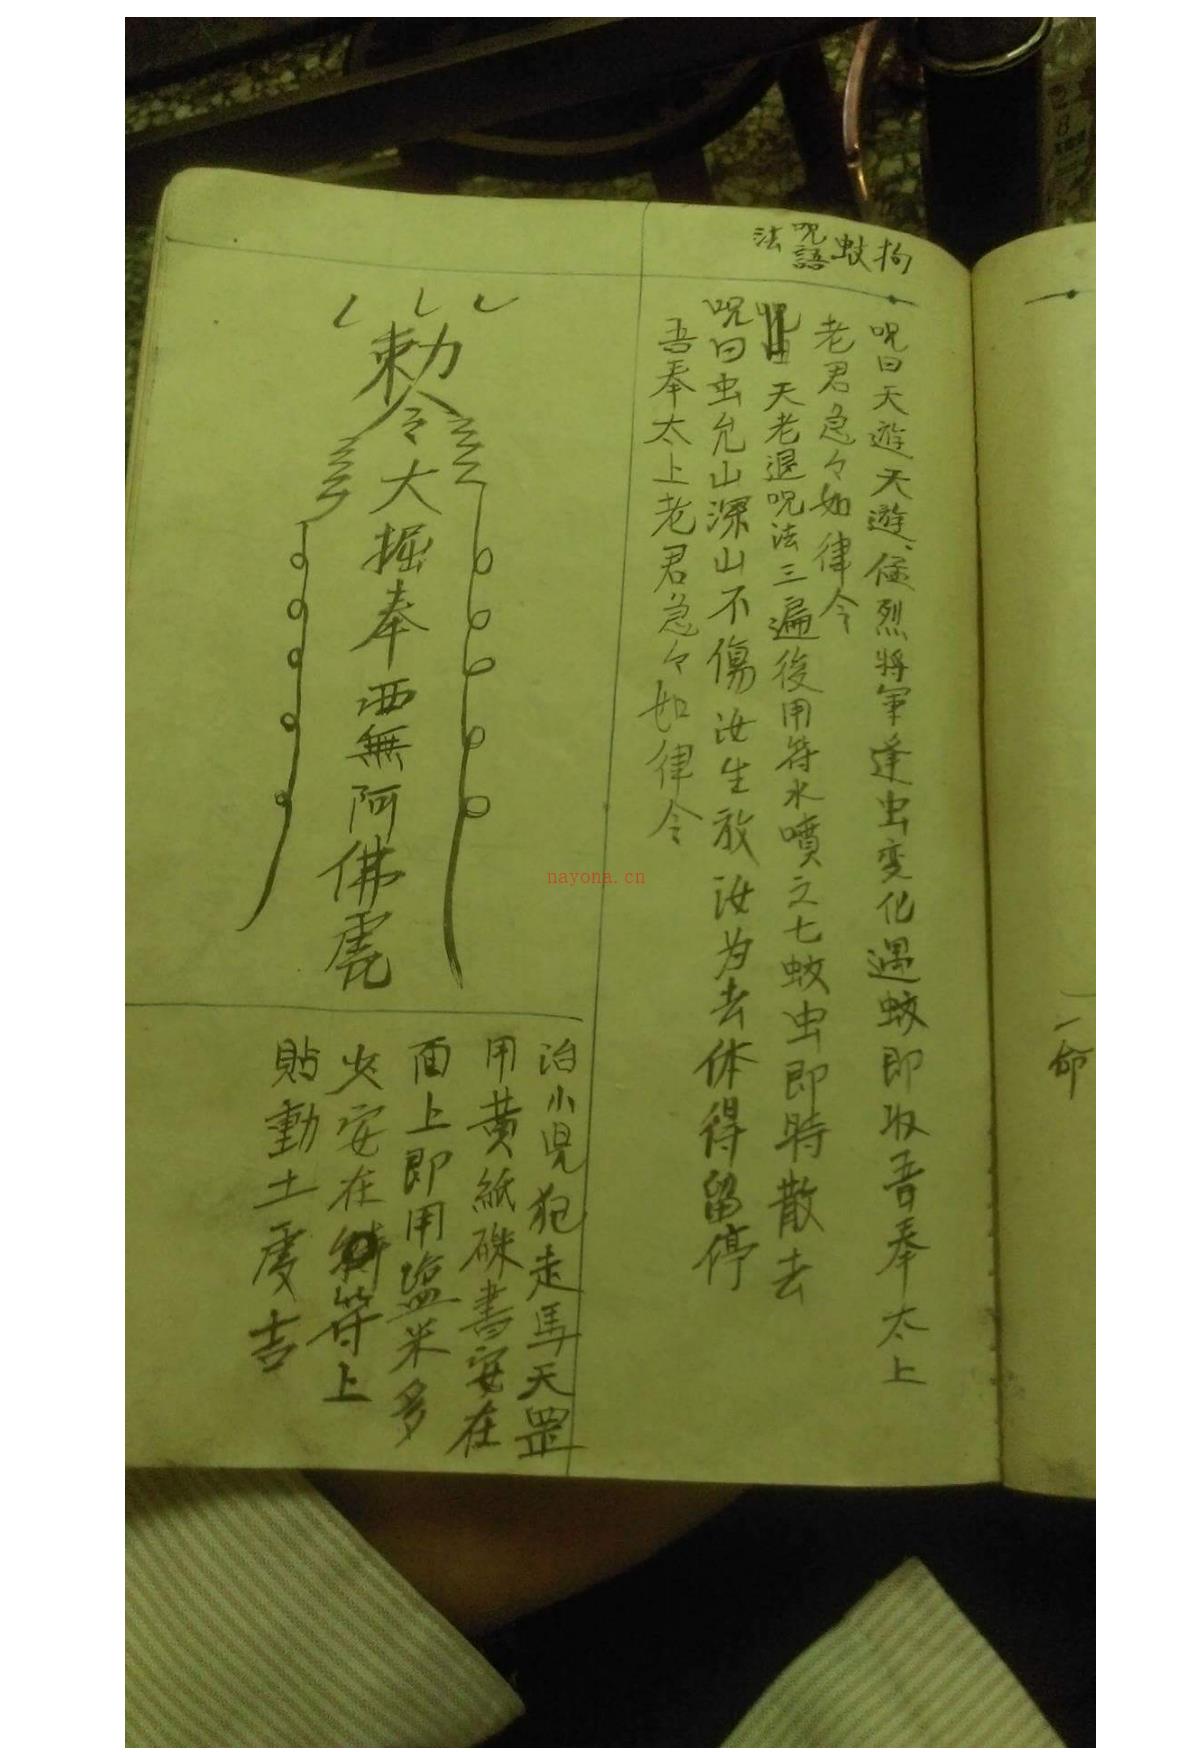 拘蚊咒語法
咒曰天遊天遊猛烈將軍逢虫变化遇蚊即収吾奉太上
老君急々如律令
天老退咒法三遍後用符水噴之七蚊虫即時散去
咒曰虫允山深山不傷汝生放汝为去休得留停
吾奉太上老君急々如律令
勅令大掘奉西無阿佛
治小児犯走馬天罡
用黄紙硃書安在
面上即用塩米多
火安在符上
貼動土處吉
一命
nayona.cn